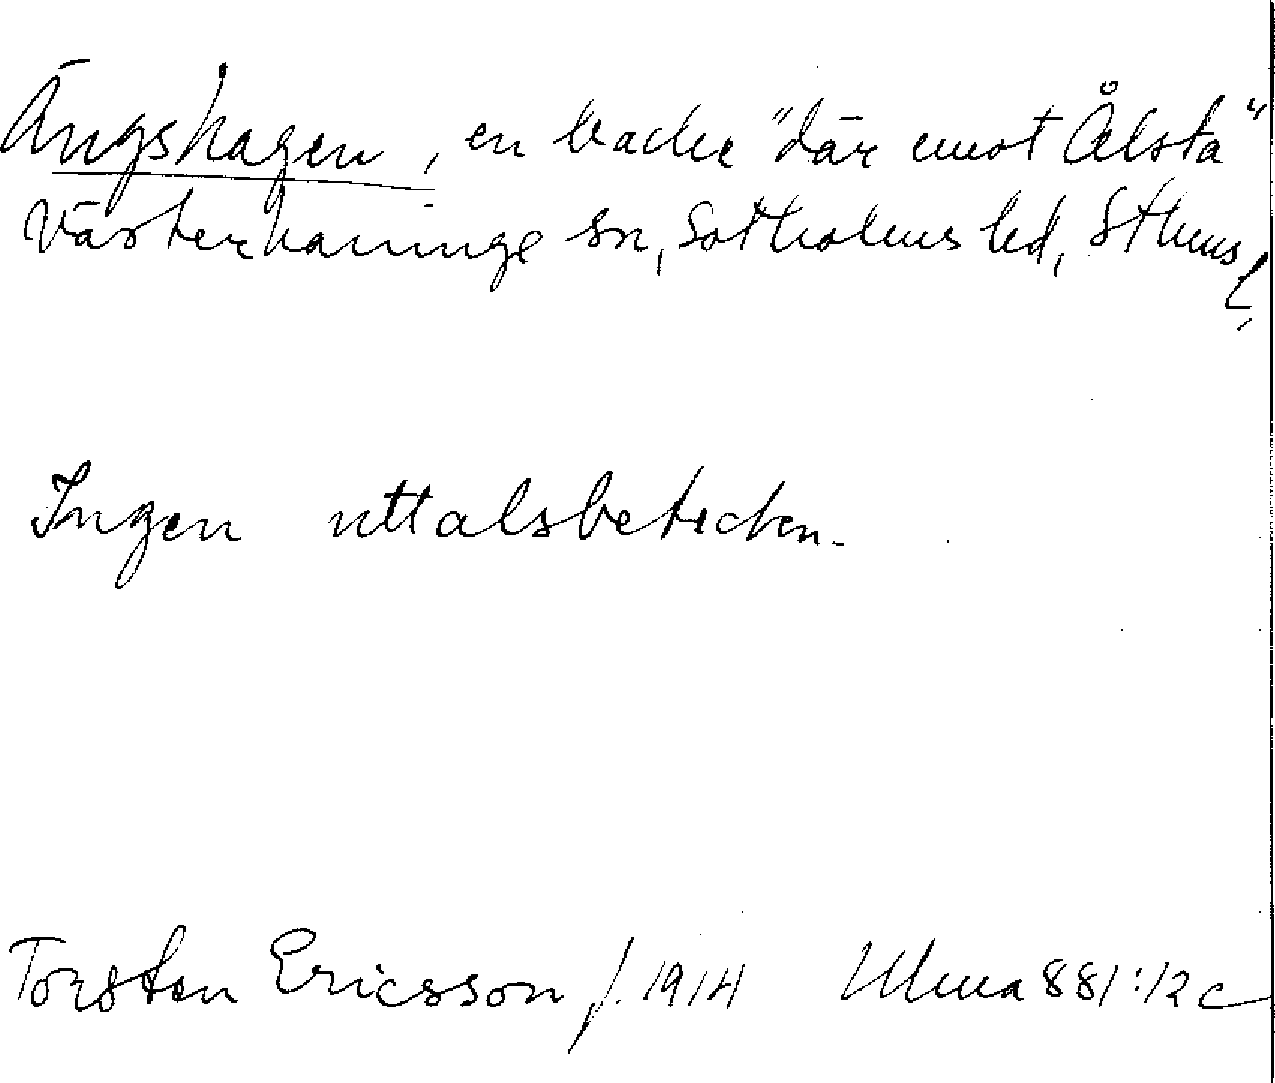 Ängshagen, en backe "där emot Ålsta"
Västerhaninge sn, Sotholms hd, Sthms
l.
Ingen uttalsbeteckn.
Torsten Ericsson f. 1914 Ulma 881:12c